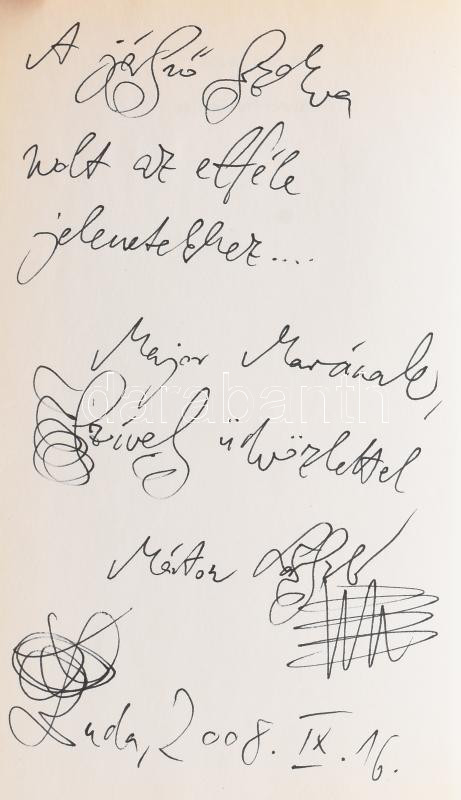 A jegyző szokva
volt az efféle
jelenetekhez....
Major Marának,
szível üdvözlettel
Márton László
Buda, 2008. IX. 16.
darabanth